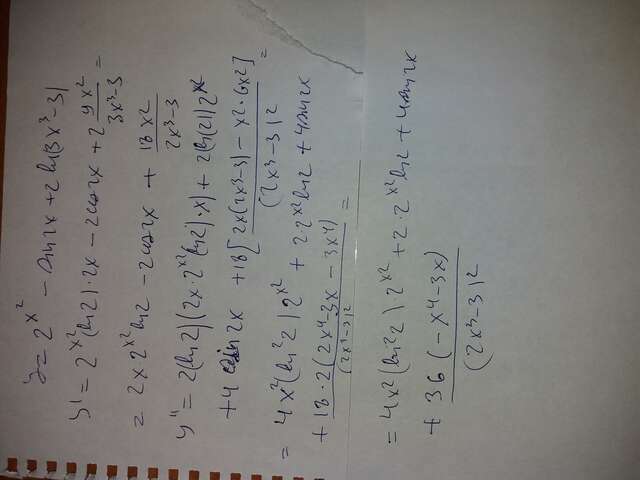 y = 2^{x^2} - sin 2x + 2 ln(3x^3 - 3)
y' = 2^{x^2} (ln 2) · 2x - 2cos 2x + 2 \frac{9x^2}{3x^3 - 3} =
= 2x 2^{x^2} ln 2 - 2cos 2x + \frac{18x^2}{2x^3 - 3}
y'' = 2(ln 2)(2x · 2^{x^2} (ln 2) · x) + 2(ln(2)) 2^{x^2}
+ 4 sin 2x + 18[\frac{2x(2x^3 - 3) - x^2 · 6x^2]}{(2x^3 - 3)^2} =
= 4x^2 (ln^2 2) 2^{x^2} + 2 · 2^{x^2} ln 2 + 4 sin 2x
+ \frac{18 · 2(2x^4 - 3x - 3x^4)}{(2x^3 - 3)^2} =
= 4x^2 (ln^2 2) · 2^{x^2} + 2 · 2^{x^2} ln 2 + 4 sin 2x
+ \frac{36(-x^4 - 3x)}{(2x^3 - 3)^2}